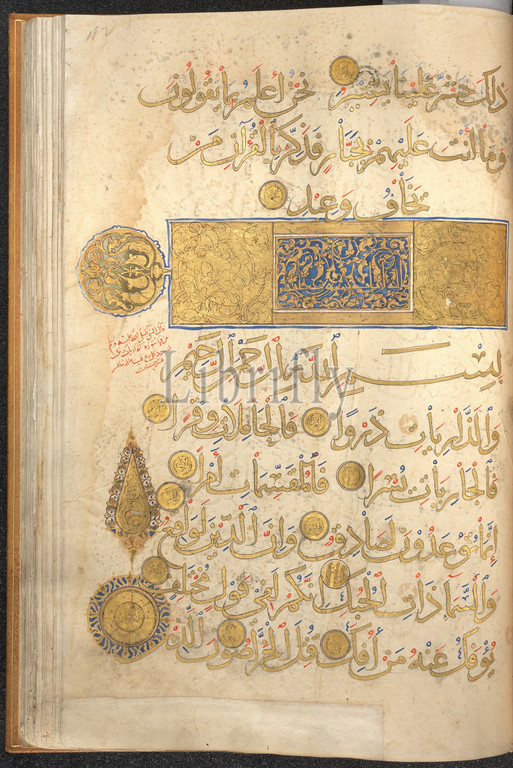 ذلك حشر علينا يسير نحن أعلم بما يقولون
وما أنت عليهم بجبار فذكر بالقرآن من
يخاف وعيد
بسم الله الرحمن الرحيم
والذاريات ذروا فالحاملات وقرا
فالجاريات يسرا فالمقسمات أمرا
إنما توعدون لصادق وإن الدين لواقع
والسماء ذات الحبك إنكم لفي قول مختلف
يؤفك عنه من أفك قتل الخراصون